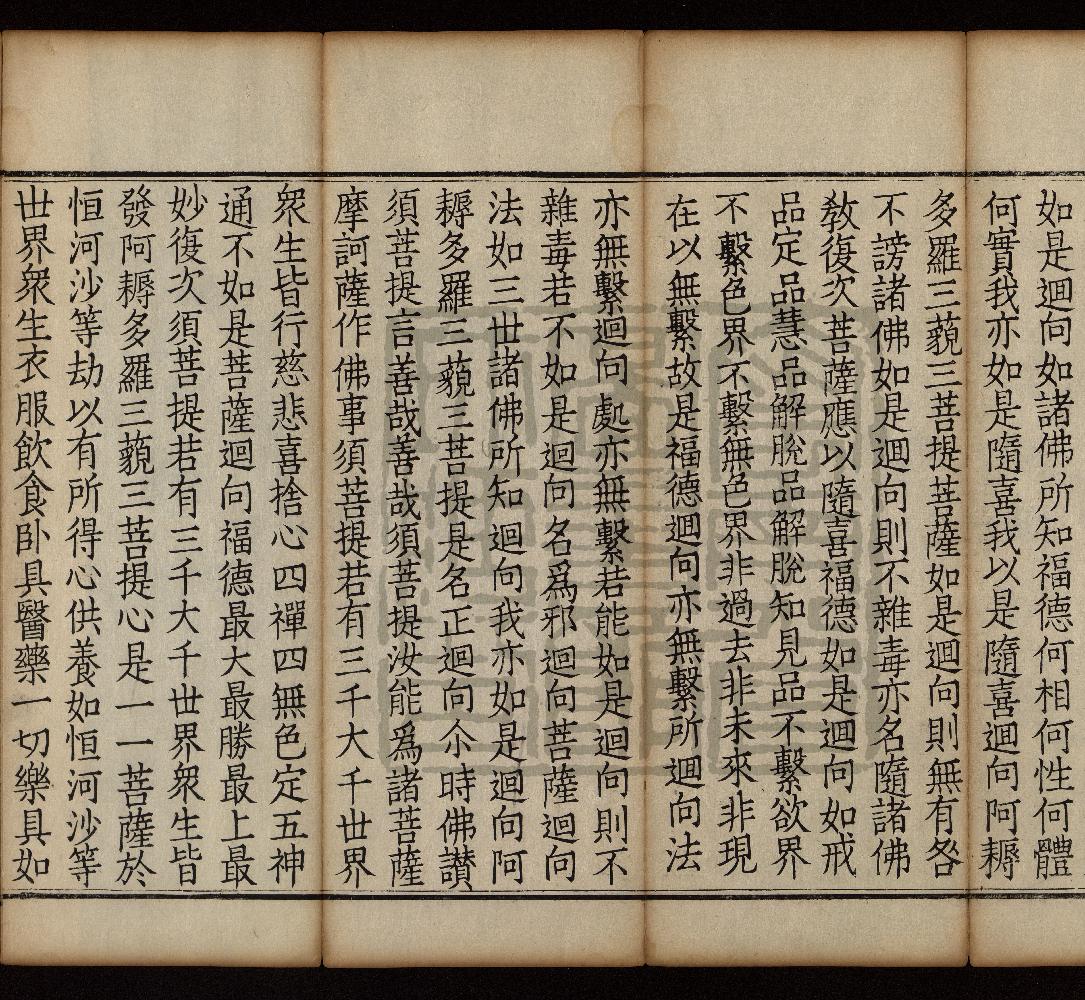 如是迴向如諸佛所知福德何相何性何體
何實我亦如是隨喜我以是隨喜迴向阿耨
多羅三藐三菩提菩薩如是迴向則無有咎
不謗諸佛如是迴向則不雜毒亦名隨諸佛
教復次菩薩應以隨喜福德如是迴向如戒
品定品慧品解脫品解脫知見品不繫欲界
不繫色界不繫無色界非過去非未來非現
在以無繫故是福德迴向亦無繫所迴向法
亦無繫迴向處亦無繫若能如是迴向則不
雜毒若不如是迴向名爲邪迴向菩薩迴向
法如三世諸佛所知迴向我亦如是迴向阿
耨多羅三藐三菩提是名正迴向尒時佛讚
須菩提言善哉善哉須菩提汝能爲諸菩薩
摩訶薩作佛事須菩提若有三千大千世界
衆生皆行慈悲喜捨心四禪四無色定五神
通不如是菩薩迴向福德最大最勝最上最
妙復次須菩提若有三千大千世界衆生皆
發阿耨多羅三藐三菩提心是一一菩薩於
恒河沙等劫以有所得心供養如恒河沙等
世界衆生衣服飲食卧具醫藥一切樂具如